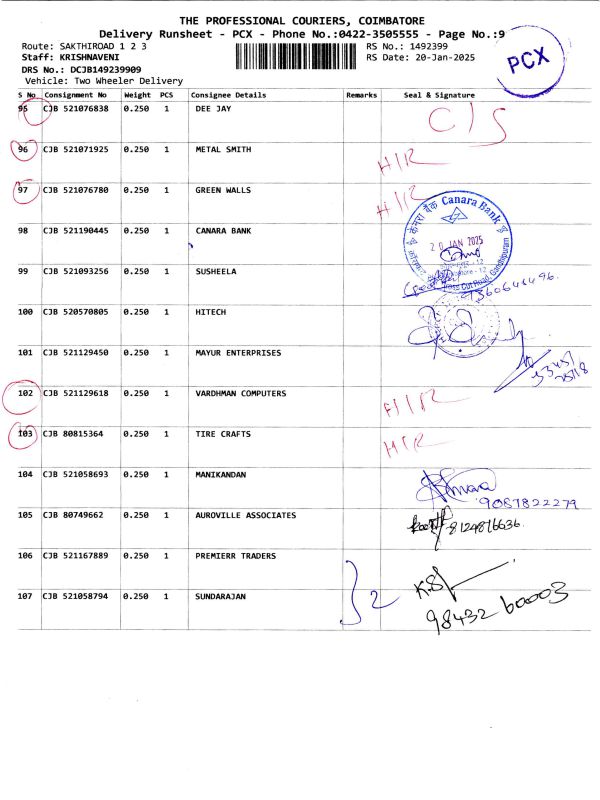 THE PROFESSIONAL COURIERS, COIMBATORE
Delivery Runsheet - PCX - Phone No.:0422-3505555 - Page No.:9
Route: SAKTHIROAD 1 2 3
Staff: KRISHNAVENI
DRS No.: DCJB149239909
Vehicle: Two Wheeler Delivery
RS No.: 1492399
RS Date: 20-Jan-2025
PCX
S No Consignment No Weight PCS Consignee Details Remarks Seal & Signature
95 CJB 521076838 0.250 1 DEE JAY C/S
96 CJB 521071925 0.250 1 METAL SMITH H/R
97 CJB 521076780 0.250 1 GREEN WALLS H/R
98 CJB 521190445 0.250 1 CANARA BANK
केनरा बैंक Canara Bank
20 JAN 2025
Cut Road, Gandhipuram
99 CJB 521093256 0.250 1 SUSHEELA
100 CJB 520570805 0.250 1 HITECH
101 CJB 521129450 0.250 1 MAYUR ENTERPRISES
102 CJB 521129618 0.250 1 VARDHMAN COMPUTERS H/R
103 CJB 80815364 0.250 1 TIRE CRAFTS H/R
104 CJB 521058693 0.250 1 MANIKANDAN
9087822279
105 CJB 80749662 0.250 1 AUROVILLE ASSOCIATES 8124876636
106 CJB 521167889 0.250 1 PREMIERR TRADERS
107 CJB 521058794 0.250 1 SUNDARAJAN 2
98432 60003